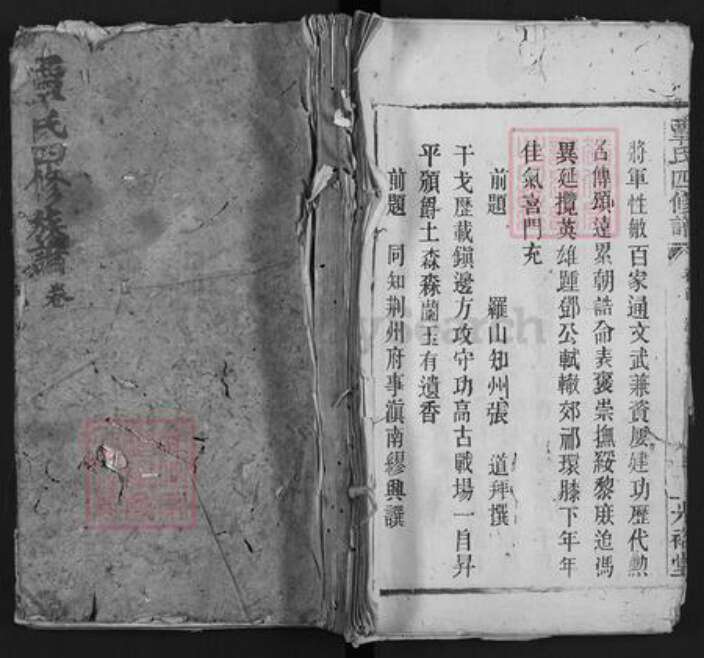 覃氏四修族譜 卷
覃氏四修譜
將軍性敏百家通文武兼資屢建功歷代勲
名傳頌達累朝誥命表褒崇撫綏黎庶追馮
異延攬英雄踵鄧公軾轍郊祁環膝下年年
佳氣喜門充
前題 羅山知州張 道拜撰
干戈歷載鎮邊方攻守功高古戰場一自昇
平頒爵土森森蘭玉有遺香
前題 同知荆州府事滇南繆興譔